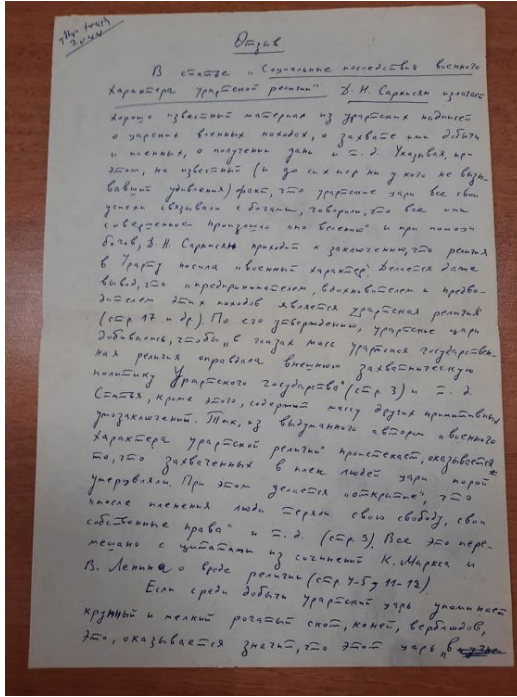 Отзыв
В статье „Социальные последствия военного
характера урартской религии" Д. Н. Саркисян излагает
хорошо известный материал из урартских надписей
о царских военных походах, о захвате ими добычи
и пленных, о получении дани и т. д. Указывая, при
этом, на известный (и до сих пор ни у кого не вызы-
вавший удивления) факт, что урартские цари все свои
успехи связывали с богами, говорили, что все ими
совершенное произошло „по велению" и при помощи
богов, Д. Н. Саркисян приходит к заключению, что религия
в Урарту носила „военный характер". Делается даже
вывод, что „предпринимателем, вдохновителем и предво-
дителем этих походов является урартская религия
(стр. 17 и др). По его утверждению, урартские цари
добивались, чтобы „в глазах масс урартская государствен-
ная религия оправдала внешнюю захватническую
политику Урартского государства" (стр 3) и т. д.
Статья, кроме этого, содержит массу других примитивных
умозаключений. Так, из выдуманного автором „военного
характера урартской религии" проистекает, оказывается
то, что захваченных в плен людей цари порой
умерщвляли. При этом делается „открытие", что
„после пленения люди теряли свою свободу, свои
собственные права" и т. д. (стр. 9). Все это пере-
мешано с цитатами из сочинений К. Маркса и
В. Ленина о вреде религии (стр 4-5, 11-12).
Если среди добычи урартский царь упоминает
крупный и мелкий рогатый скот, коней, верблюдов,
это, оказывается значит, что этот царь „в